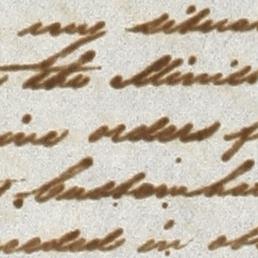 my situa
the Minis
ive orders f
Customhou
ceeded in ob